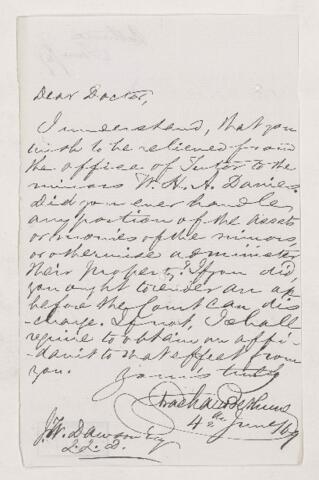 Dear Doctor,
I understand, that you
wish to be relieved from
the office of Tutor to the
minors W. H. A. Davies.
Did you ever handle
any portion of the assets
or monies of the minors,
or otherwise administer
their property. If you did
you ought to render an a/c
before the Court can dis-
charge. If not, I shall
require to obtain an affi-
davit to that effect from
you.
Yours truly
4th June/69
J. W. Dawson Esq
L.L.D.